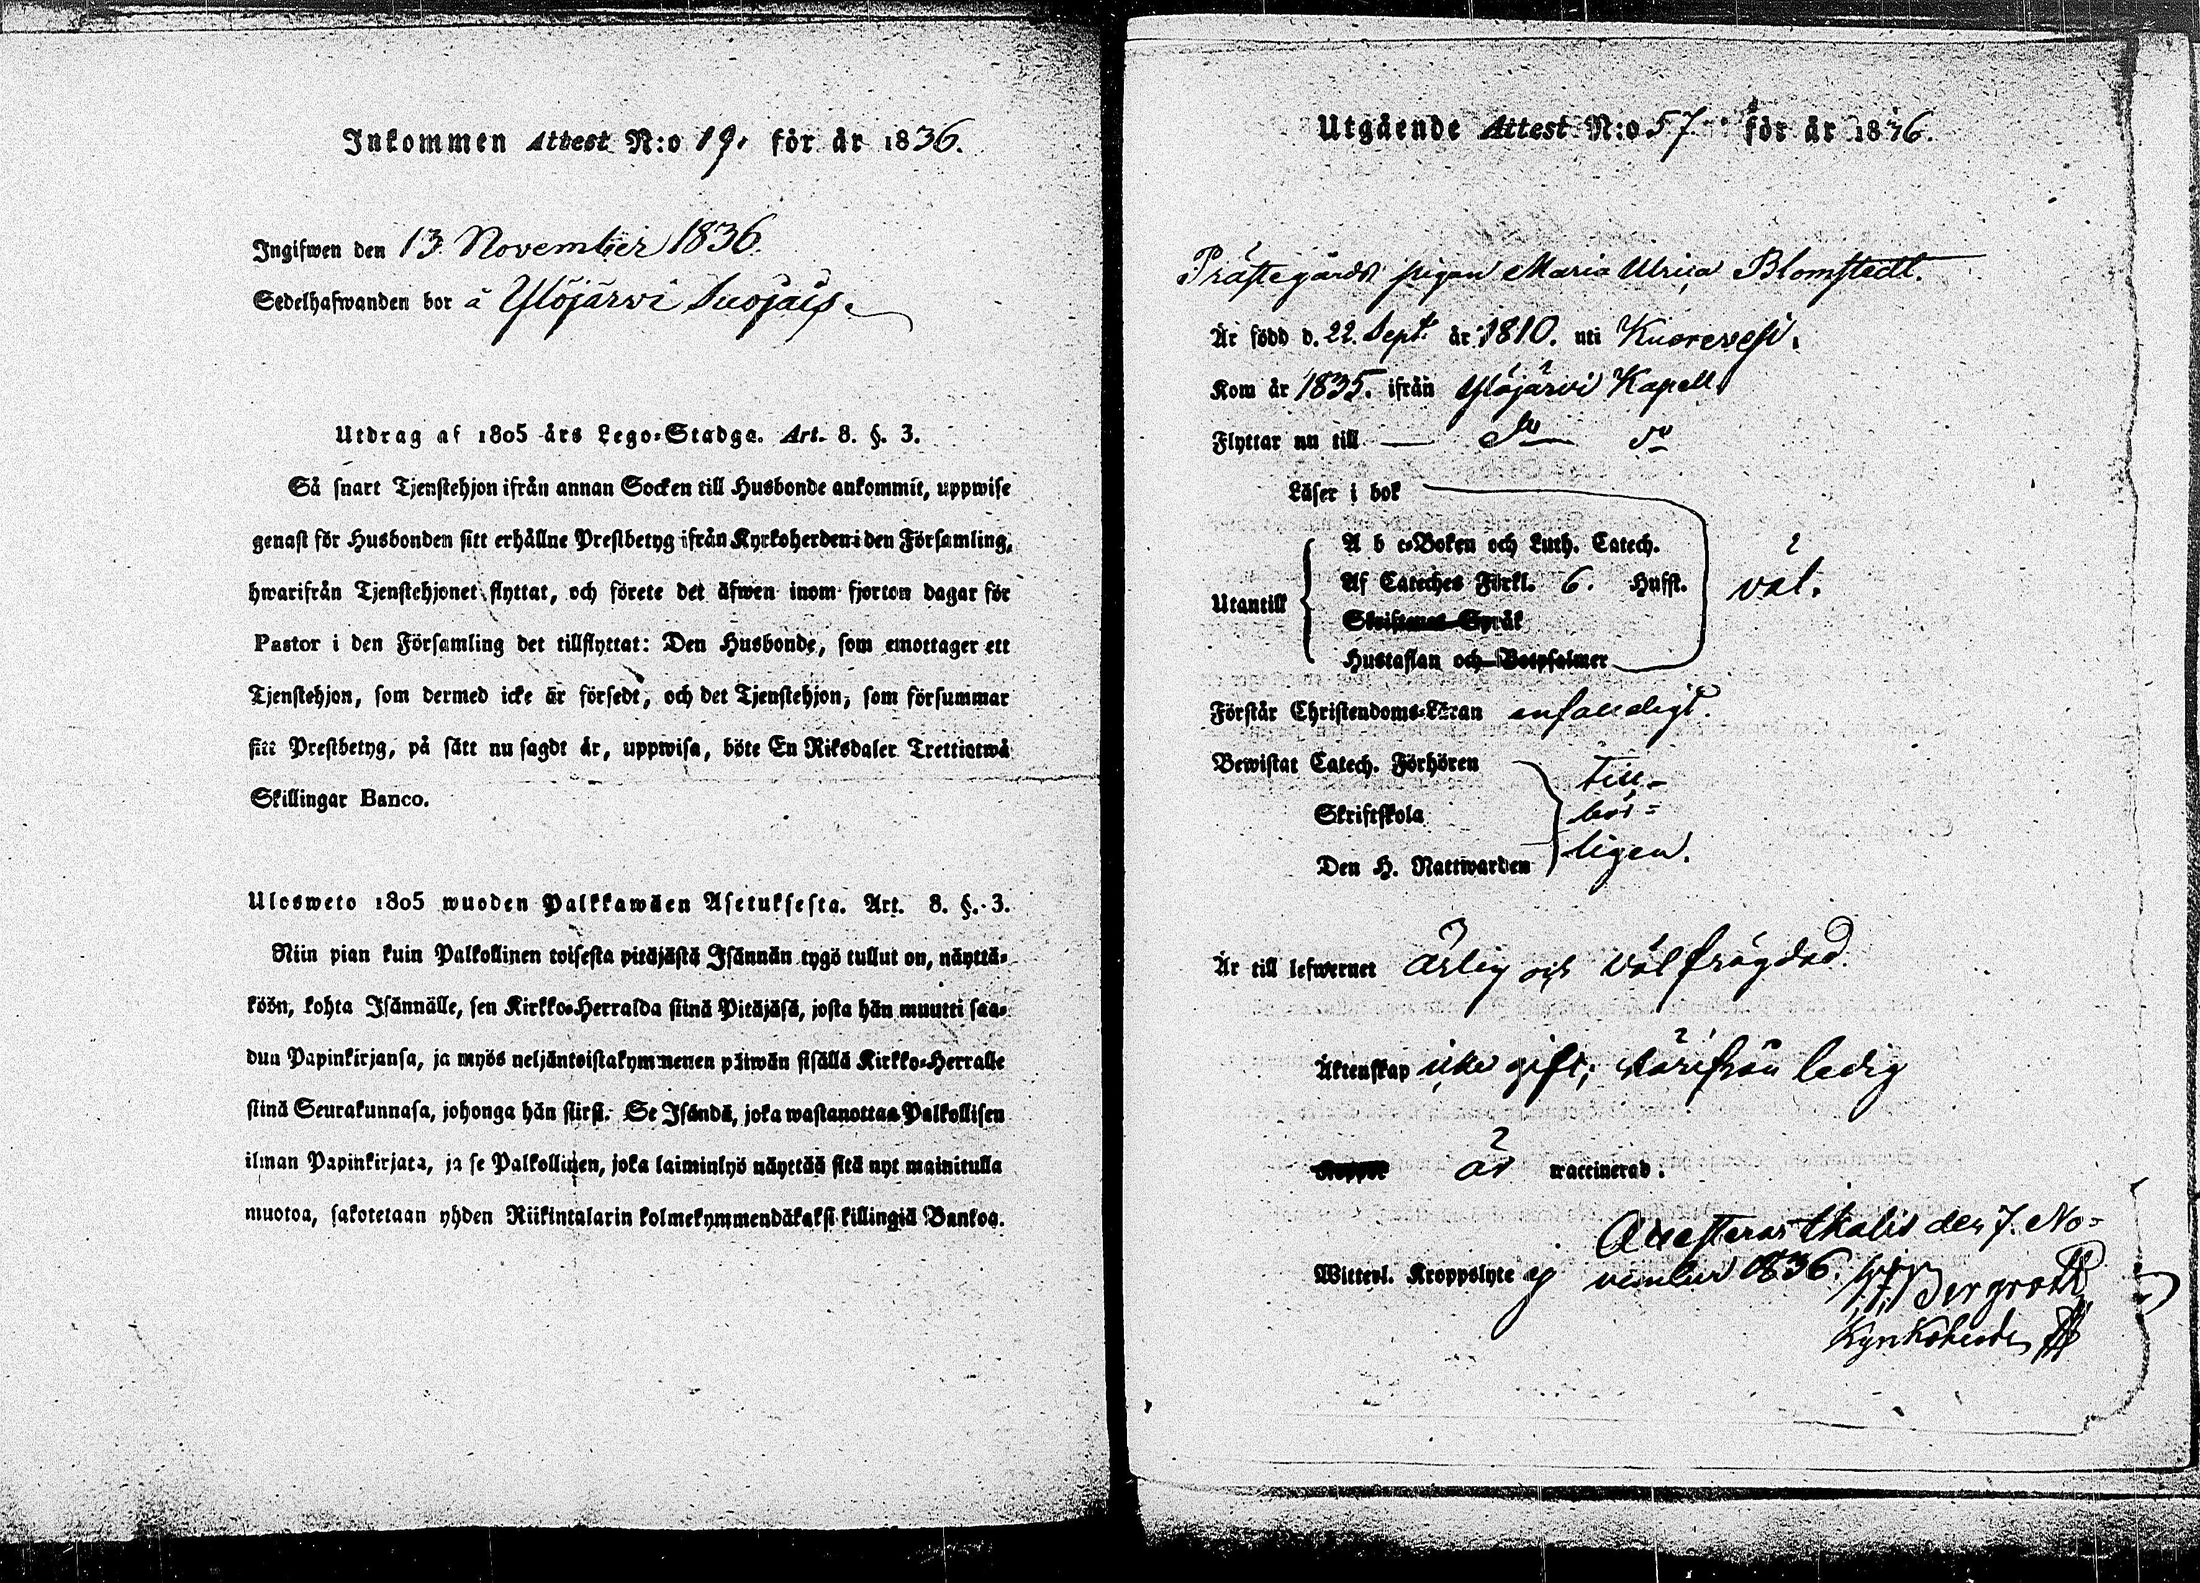 Inkommen Attest N:o 19. för år 1836.
Ingifwen den 13 November 1836.
Sedelhafwanden bor å Ylöjärvi
Utdrag af 1805 års Lego-Stadga. Art. 8. §. 3.
Så snart Tjenstehjon ifrån annan Socken till Husbonde ankommit, uppwise
genast för Husbonden sitt erhållne Prestbetyg ifrån Kyrkoherden i den Församling,
hwarifrån Tjenstehjonet flyttat, och förete det äfwen inom fjorton dagar för
Pastor i den Församling det tillflyttat: Den Husbonde, som emottager ett
Tjenstehjon, som dermed icke är försedt, och det Tjenstehjon, som försummar
sitt Prestbetyg, på sätt nu sagdt är, uppwisa, böte En Riksdaler Trettiotwå
Skillingar Banco.
Ulosweto 1805 wuoden Palkkawäen Asetuksesta. Art. 8. §. 3.
Niin pian kuin Palkollinen toisesta pitäjästä Isännän tygö tullut on, näyttä-
köön, kohta Isännälle, sen Kirkko-Herralda siinä Pitäjäsä, josta hän muutti saa-
dun Papinkirjansa, ja myös neljäntoistakymmenen päiwän sisällä Kirkko-Herralle
siinä Seurakunnasa, johonga hän siirsi. Se Isändä, joka wastanottaa Palkollisen
ilman Papinkirjata, ja se Palkollinen, joka laiminlyö näyttää sitä nyt mainitulla
muotoa, sakotetaan yhden Riikintalarin kolmekymmendäkaksi killingiä Bankoa.
Utgående Attest N:o 57 för år 1836.
Prästegårds pigan Maria Ulrica Blomstedt.
Är född d. 22. Sept. år 1810. uti Kuorevesi.
Kom år 1835. ifrån Ylöjärvi Kapell
Flyttar nu till — Do do
Läser i bok
A b c-Boken och Luth. Catech.
Utantill Af Cateches Förkl. 6. Hufst. väl.
Skriftenes Språk
Hustaflan och Botpsalmer
Förstår Christendoms-Läran enfaldigt.
Bewistat Catech. Förhören till-
Skriftskola bör-
Den H. Nattwarden ligen.
Är till lefwernet ärlig och välfrägdad.
Äktenskap icke gift; härifrån ledig
Koppor är waccinerad.
den 7. No-
Witterl. Kroppslyte ej vember 1836. Bergroth
Kyrkoherde